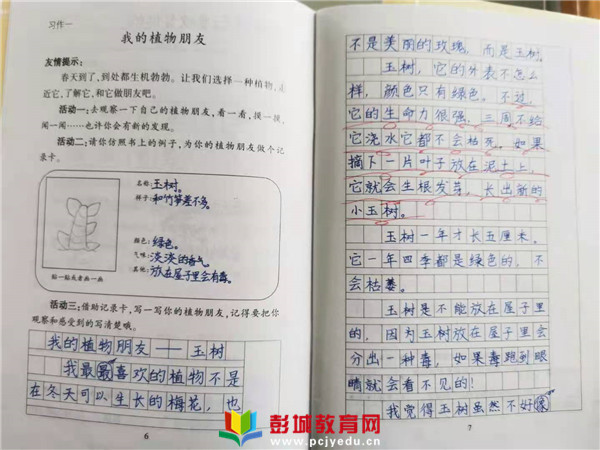 习作一
我的植物朋友
友情提示：
春天到了，到处都生机勃勃。让我们选择一种植物，走
近它，了解它，和它做朋友吧。
活动一：去观察一下自己的植物朋友，看一看，摸一摸，
闻一闻……也许你会有新的发现。
活动二：请你仿照书上的例子，为你的植物朋友做个记
录卡。
名称：玉树。
样子：和竹笋差不多。
颜色：绿色。
气味：淡淡的香气。
其他：放在屋子里会有毒。
贴一贴或者画一画
活动三：借助记录卡，写一写你的植物朋友，记得要把你
观察和感受到的写清楚哦。
我的植物朋友——玉树
我最最喜欢的植物不是
在冬天可以生长的梅花，也
6
不是美丽的玫瑰，而是玉树。
玉树，它的外表不怎么
样，颜色只有绿色。不过，
它的生命力很强，三周不给
它浇水它都不会枯死。如果
摘下一片叶子放在泥土上，
它就会生根发芽，长出新的
小玉树。
玉树一年才长五厘米。
它一年四季都是绿色的，不
会枯萎。
玉树是不能放在屋子里
的，因为玉树放在屋子里会
分出一种毒，如果毒跑到眼
睛就会看不见的！
我觉得玉树虽然不好
7
彭城教育网
www.pcjyedu.cn